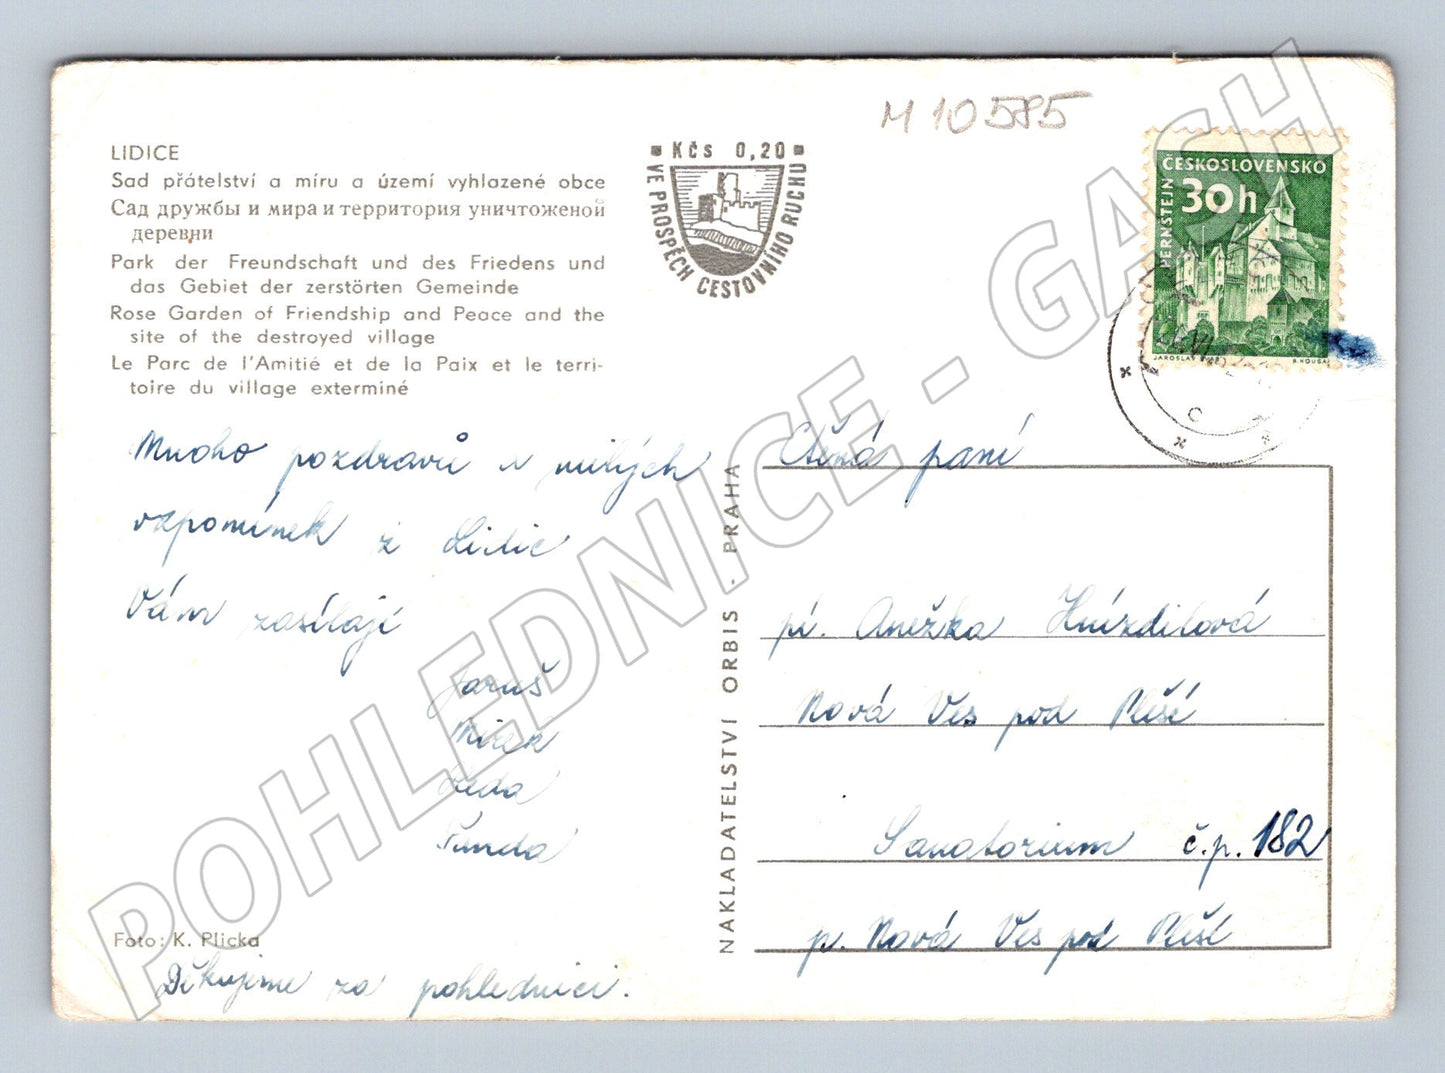 M 10585
LIDICE
Sad přátelství a míru a území vyhlazené obce
Сад дружбы и мира и территория уничтоженой
деревни
Park der Freundschaft und des Friedens und
das Gebiet der zerstörten Gemeinde
Rose Garden of Friendship and Peace and the
site of the destroyed village
Le Parc de l'Amitié et de la Paix et le terri-
toire du village exterminé
Kčs 0,20
VE PROSPĚCH CESTOVNÍHO RUCHU
ČESKOSLOVENSKO
30h
PERNŠTEJN
JAROSLAV
Mnoho pozdravů a milých
vzpomínek z Lidic
Vám zasílají
Jaruš
Mirek
Lida
Foto: K. Plicka
Děkujeme za pohlednici.
NAKLADATELSTVÍ ORBIS - PRAHA
Ctěná paní
pí. Anežka Hnízdilová
Nová Ves pod Pleší
Sanatorium č.p. 182
p. Nová Ves pod Pleší
POHLEDNICE - GASH